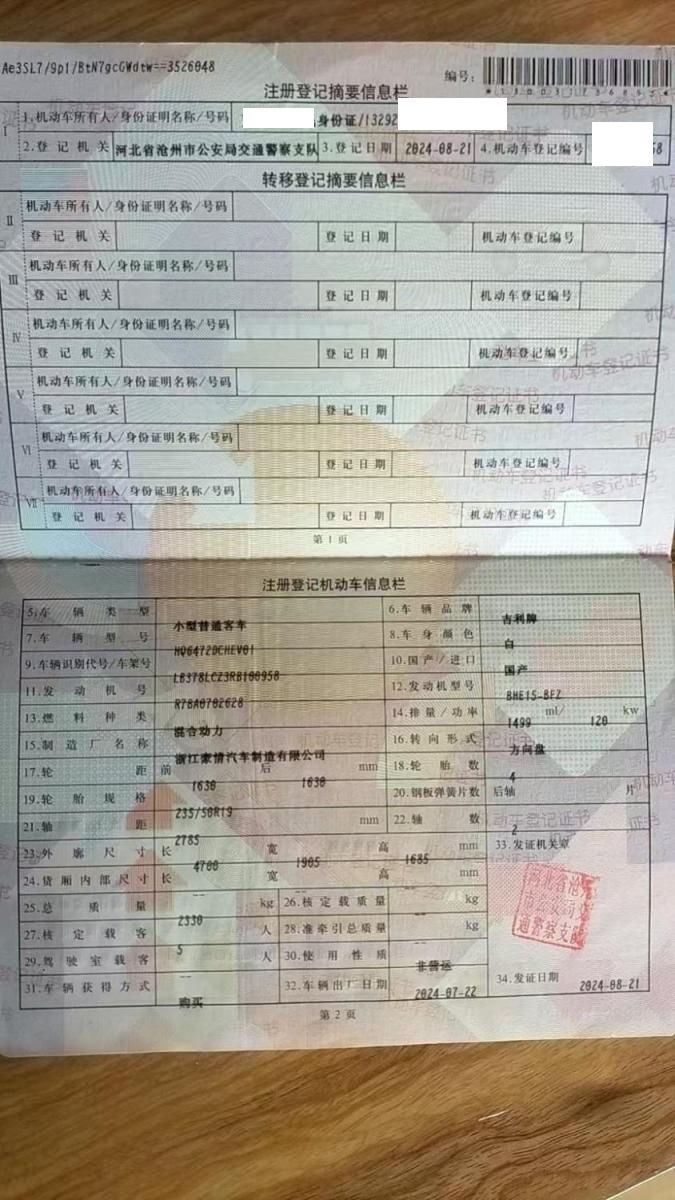 Ae3SL7/9p1/BtN7gcGWdtw==3526048
编号:
注册登记摘要信息栏
I 1.机动车所有人/身份证明名称/号码 身份证/13292
2.登记机关 河北省沧州市公安局交通警察支队 3.登记日期 2024-08-21 4.机动车登记编号 58
转移登记摘要信息栏
II 机动车所有人/身份证明名称/号码
登记机关 登记日期 机动车登记编号
III 机动车所有人/身份证明名称/号码
登记机关 登记日期 机动车登记编号
IV 机动车所有人/身份证明名称/号码
登记机关 登记日期 机动车登记编号
V 机动车所有人/身份证明名称/号码
登记机关 登记日期 机动车登记编号
VI 机动车所有人/身份证明名称/号码
登记机关 登记日期 机动车登记编号
VII 机动车所有人/身份证明名称/号码
登记机关 登记日期 机动车登记编号
第1页
注册登记机动车信息栏
5.车辆类型 小型普通客车 6.车辆品牌 吉利牌
7.车辆型号 HQ6472DCHEV01 8.车身颜色 白
9.车辆识别代号/车架号 LB378LCZ3RB100958 10.国产/进口 国产
11.发动机号 R78A0702628 12.发动机型号 BHE15-BFZ
13.燃料种类 混合动力 14.排量/功率 1499 ml/ 120 kw
15.制造厂名称 浙江豪情汽车制造有限公司 16.转向形式 方向盘
17.轮距 前 1630 后 1630 mm 18.轮胎数 4
19.轮胎规格 235/50R19 20.钢板弹簧片数 后轴 片
21.轴距 2785 mm 22.轴数 2
23.外廓尺寸 长 4780 宽 1905 高 1685 mm 33.发证机关章
24.货厢内部尺寸 长 -- 宽 -- 高 -- mm
25.总质量 2330 kg 26.核定载质量 -- kg
27.核定载客 5 人 28.准牵引总质量 -- kg
29.驾驶室载客 -- 人 30.使用性质 非营运
31.车辆获得方式 购买 32.车辆出厂日期 2024-07-22 34.发证日期 2024-08-21
河北省沧
州市公安局交
通警察支队
第2页